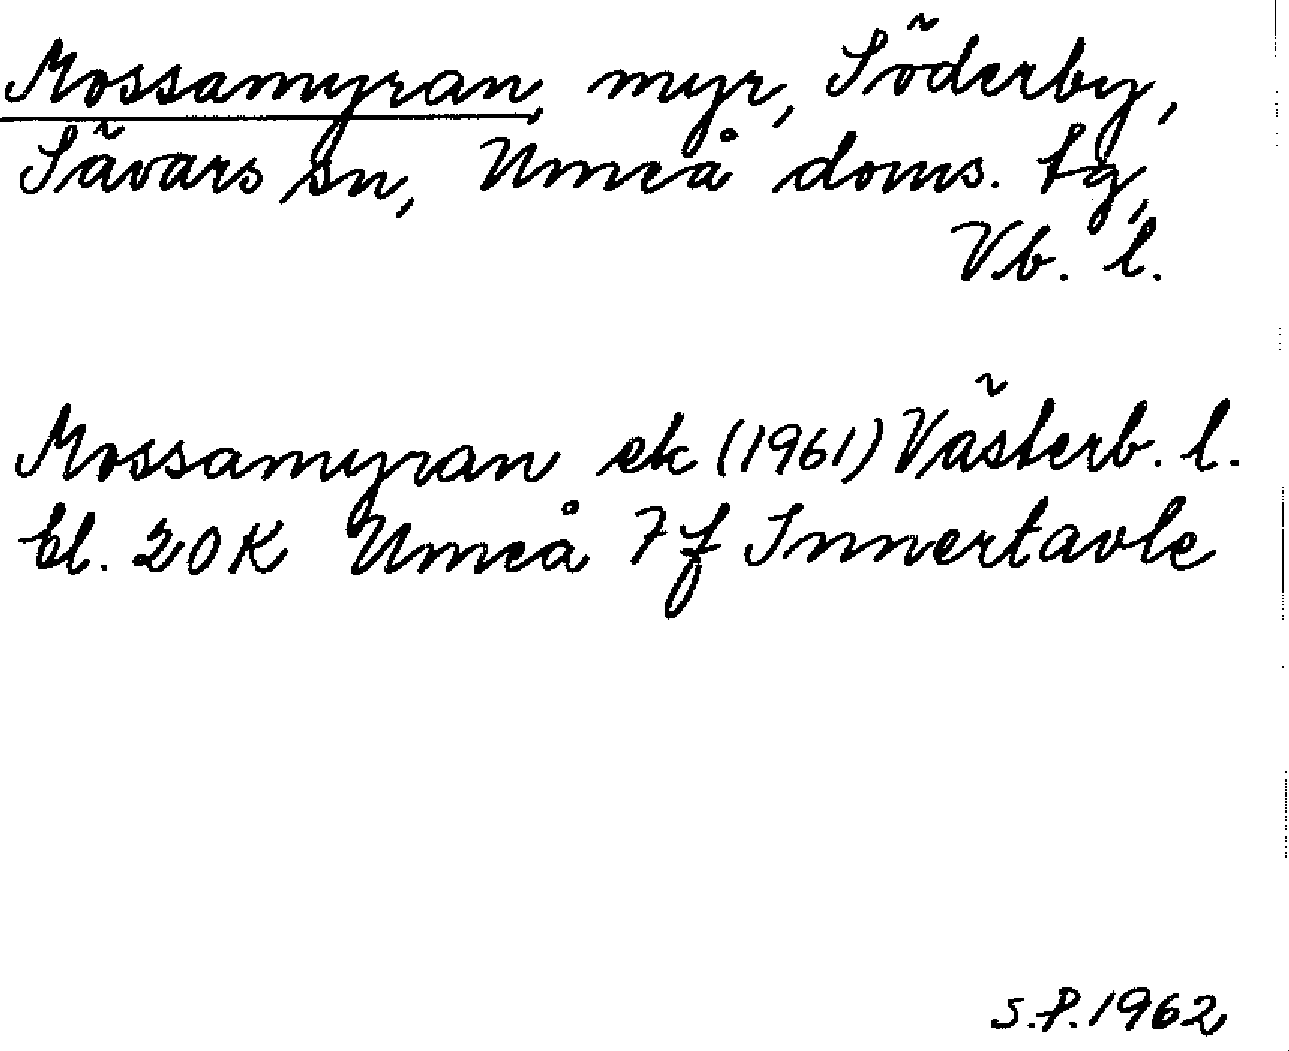 Mossamyran, myr, Söderby,
Sävars sn, Umeå doms. tg,
Vb. l.
Mossamyran ek (1961) Västerb. l.
bl. 20 K Umeå 7 f Innertavle
S.P. 1962